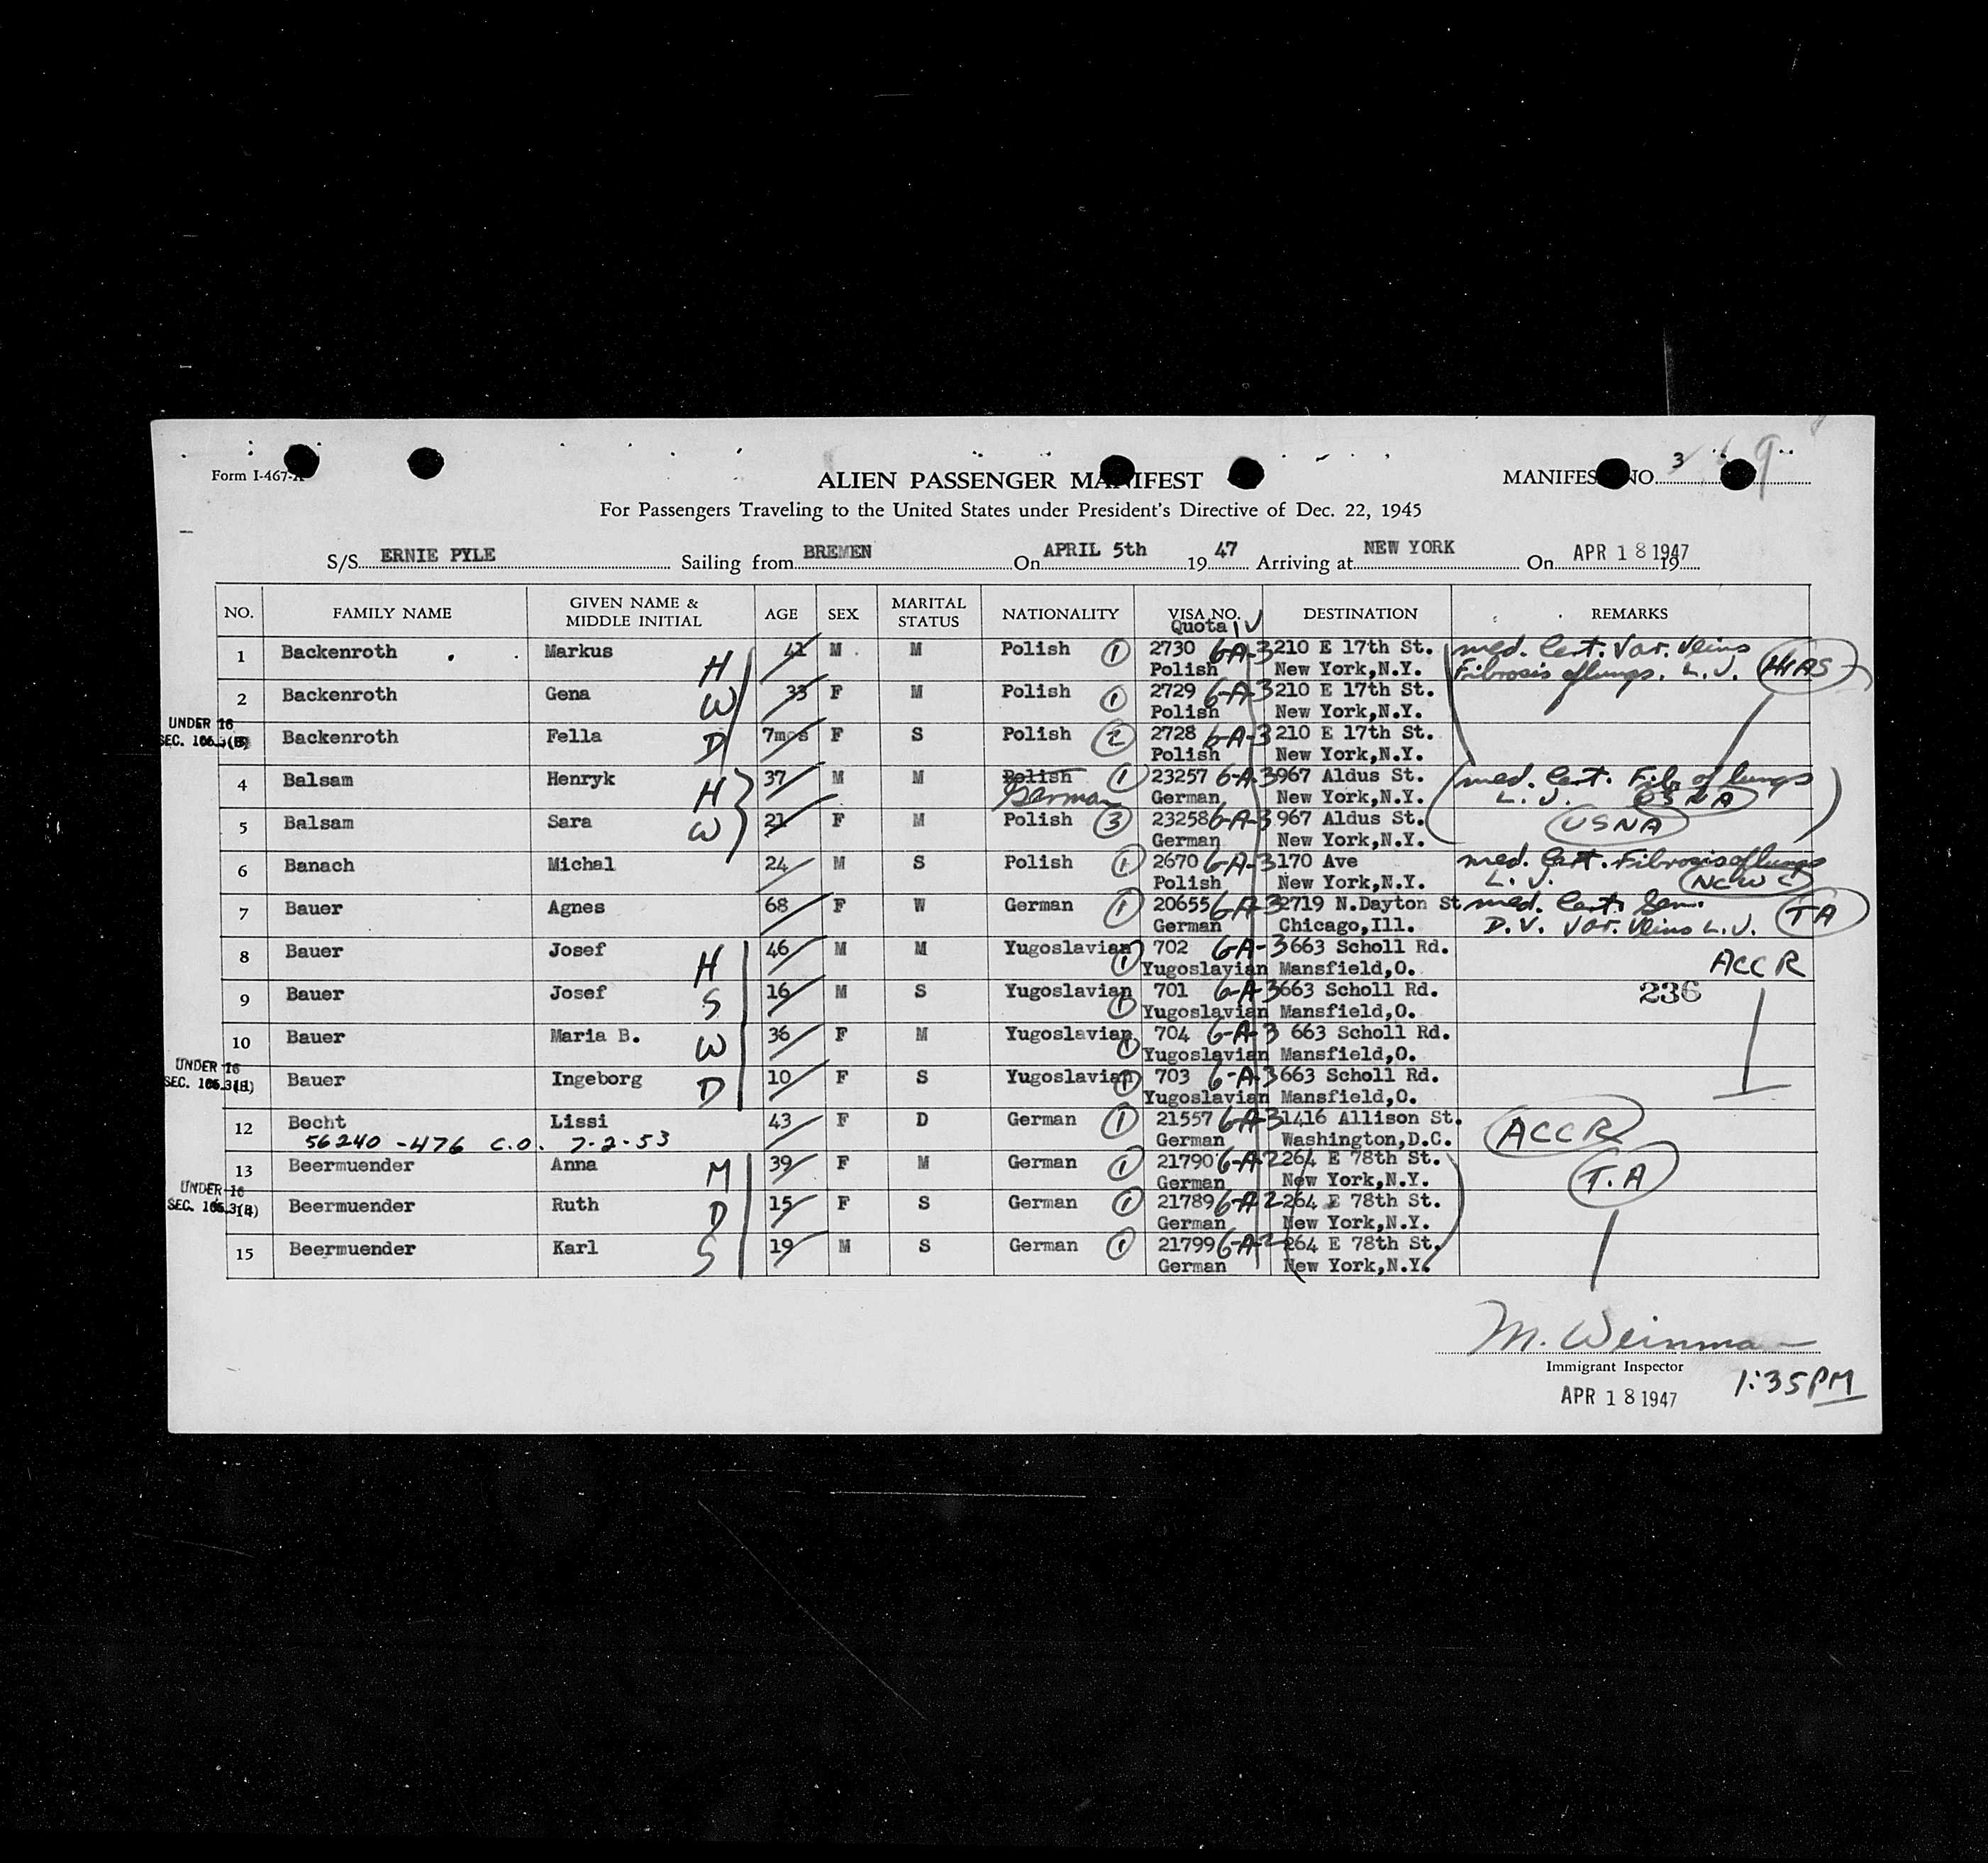 Form I-467-A
ALIEN PASSENGER MANIFEST
MANIFEST NO. 3 9
For Passengers Traveling to the United States under President's Directive of Dec. 22, 1945
S/S ERNIE PYLE Sailing from BREMEN On APRIL 5th 19 47 Arriving at NEW YORK On APR 18 1947 19
NO. FAMILY NAME GIVEN NAME & MIDDLE INITIAL AGE SEX MARITAL STATUS NATIONALITY VISA NO. Quota IV DESTINATION REMARKS
1 Backenroth Markus H 41 M M Polish 1 2730 6-A-3 210 E 17th St. med. Cert. Var. Veins
Polish New York,N.Y. Fibrosis of lungs. L.J. HIAS
2 Backenroth Gena W 33 F M Polish 1 2729 6-A-3 210 E 17th St.
Polish New York,N.Y.
UNDER 16
SEC. Backenroth Fella D 7mos F S Polish 2 2728 6-A-3 210 E 17th St.
Polish New York,N.Y.
4 Balsam Henryk H 37 M M Polish 1 23257 6-A-3 967 Aldus St. med. Cert. Fib. of lungs
German German New York,N.Y. L.J. USNA
5 Balsam Sara W 21 F M Polish 3 23258 6-A-3 967 Aldus St. USNA
German New York,N.Y.
6 Banach Michal 24 M S Polish 1 2670 6-A-3 170 Ave med. Cert. Fibrosis of lungs
Polish New York,N.Y. L.J. NCWC
7 Bauer Agnes 68 F W German 1 20655 6-A-3 2719 N.Dayton St med. Cert. Sen. TA
German Chicago,Ill. D.V. Var. Veins L.J.
8 Bauer Josef H 46 M M Yugoslavian 1 702 6-A-3 663 Scholl Rd. ACCR
Yugoslavian Mansfield,O.
9 Bauer Josef S 16 M S Yugoslavian 1 701 6-A-3 663 Scholl Rd. 236
Yugoslavian Mansfield,O.
10 Bauer Maria B. W 36 F M Yugoslavian 1 704 6-A-3 663 Scholl Rd.
Yugoslavian Mansfield,O.
UNDER 16
SEC. Bauer Ingeborg D 10 F S Yugoslavian 1 703 6-A-3 663 Scholl Rd.
Yugoslavian Mansfield,O.
12 Becht Lissi 43 F D German 1 21557 6-A-3 1416 Allison St. ACCR
56240-476 C.O. 7-2-53 German Washington,D.C.
13 Beermuender Anna M 39 F M German 1 21790 6-A-2 264 E 78th St. T.A
German New York,N.Y.
UNDER 16
SEC. Beermuender Ruth D 15 F S German 1 21789 6-A-2 264 E 78th St.
German New York,N.Y.
15 Beermuender Karl S 19 M S German 1 21799 6-A-2 264 E 78th St.
German New York,N.Y.
M. Weinman
Immigrant Inspector
APR 18 1947 1:35PM